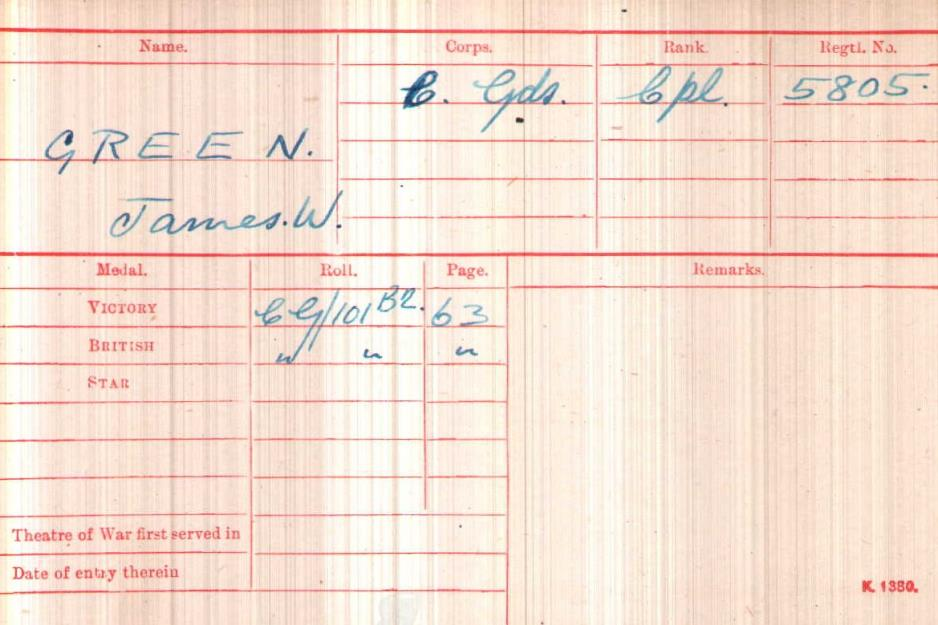 Name. Corps. Rank. Regtl. No.
C. Gds. Cpl. 5805.
GREEN.
James.W.
Medal. Roll. Page. Remarks.
VICTORY CG/101 B2. 63
BRITISH " " "
STAR
Theatre of War first served in
Date of entry therein
K. 1380.